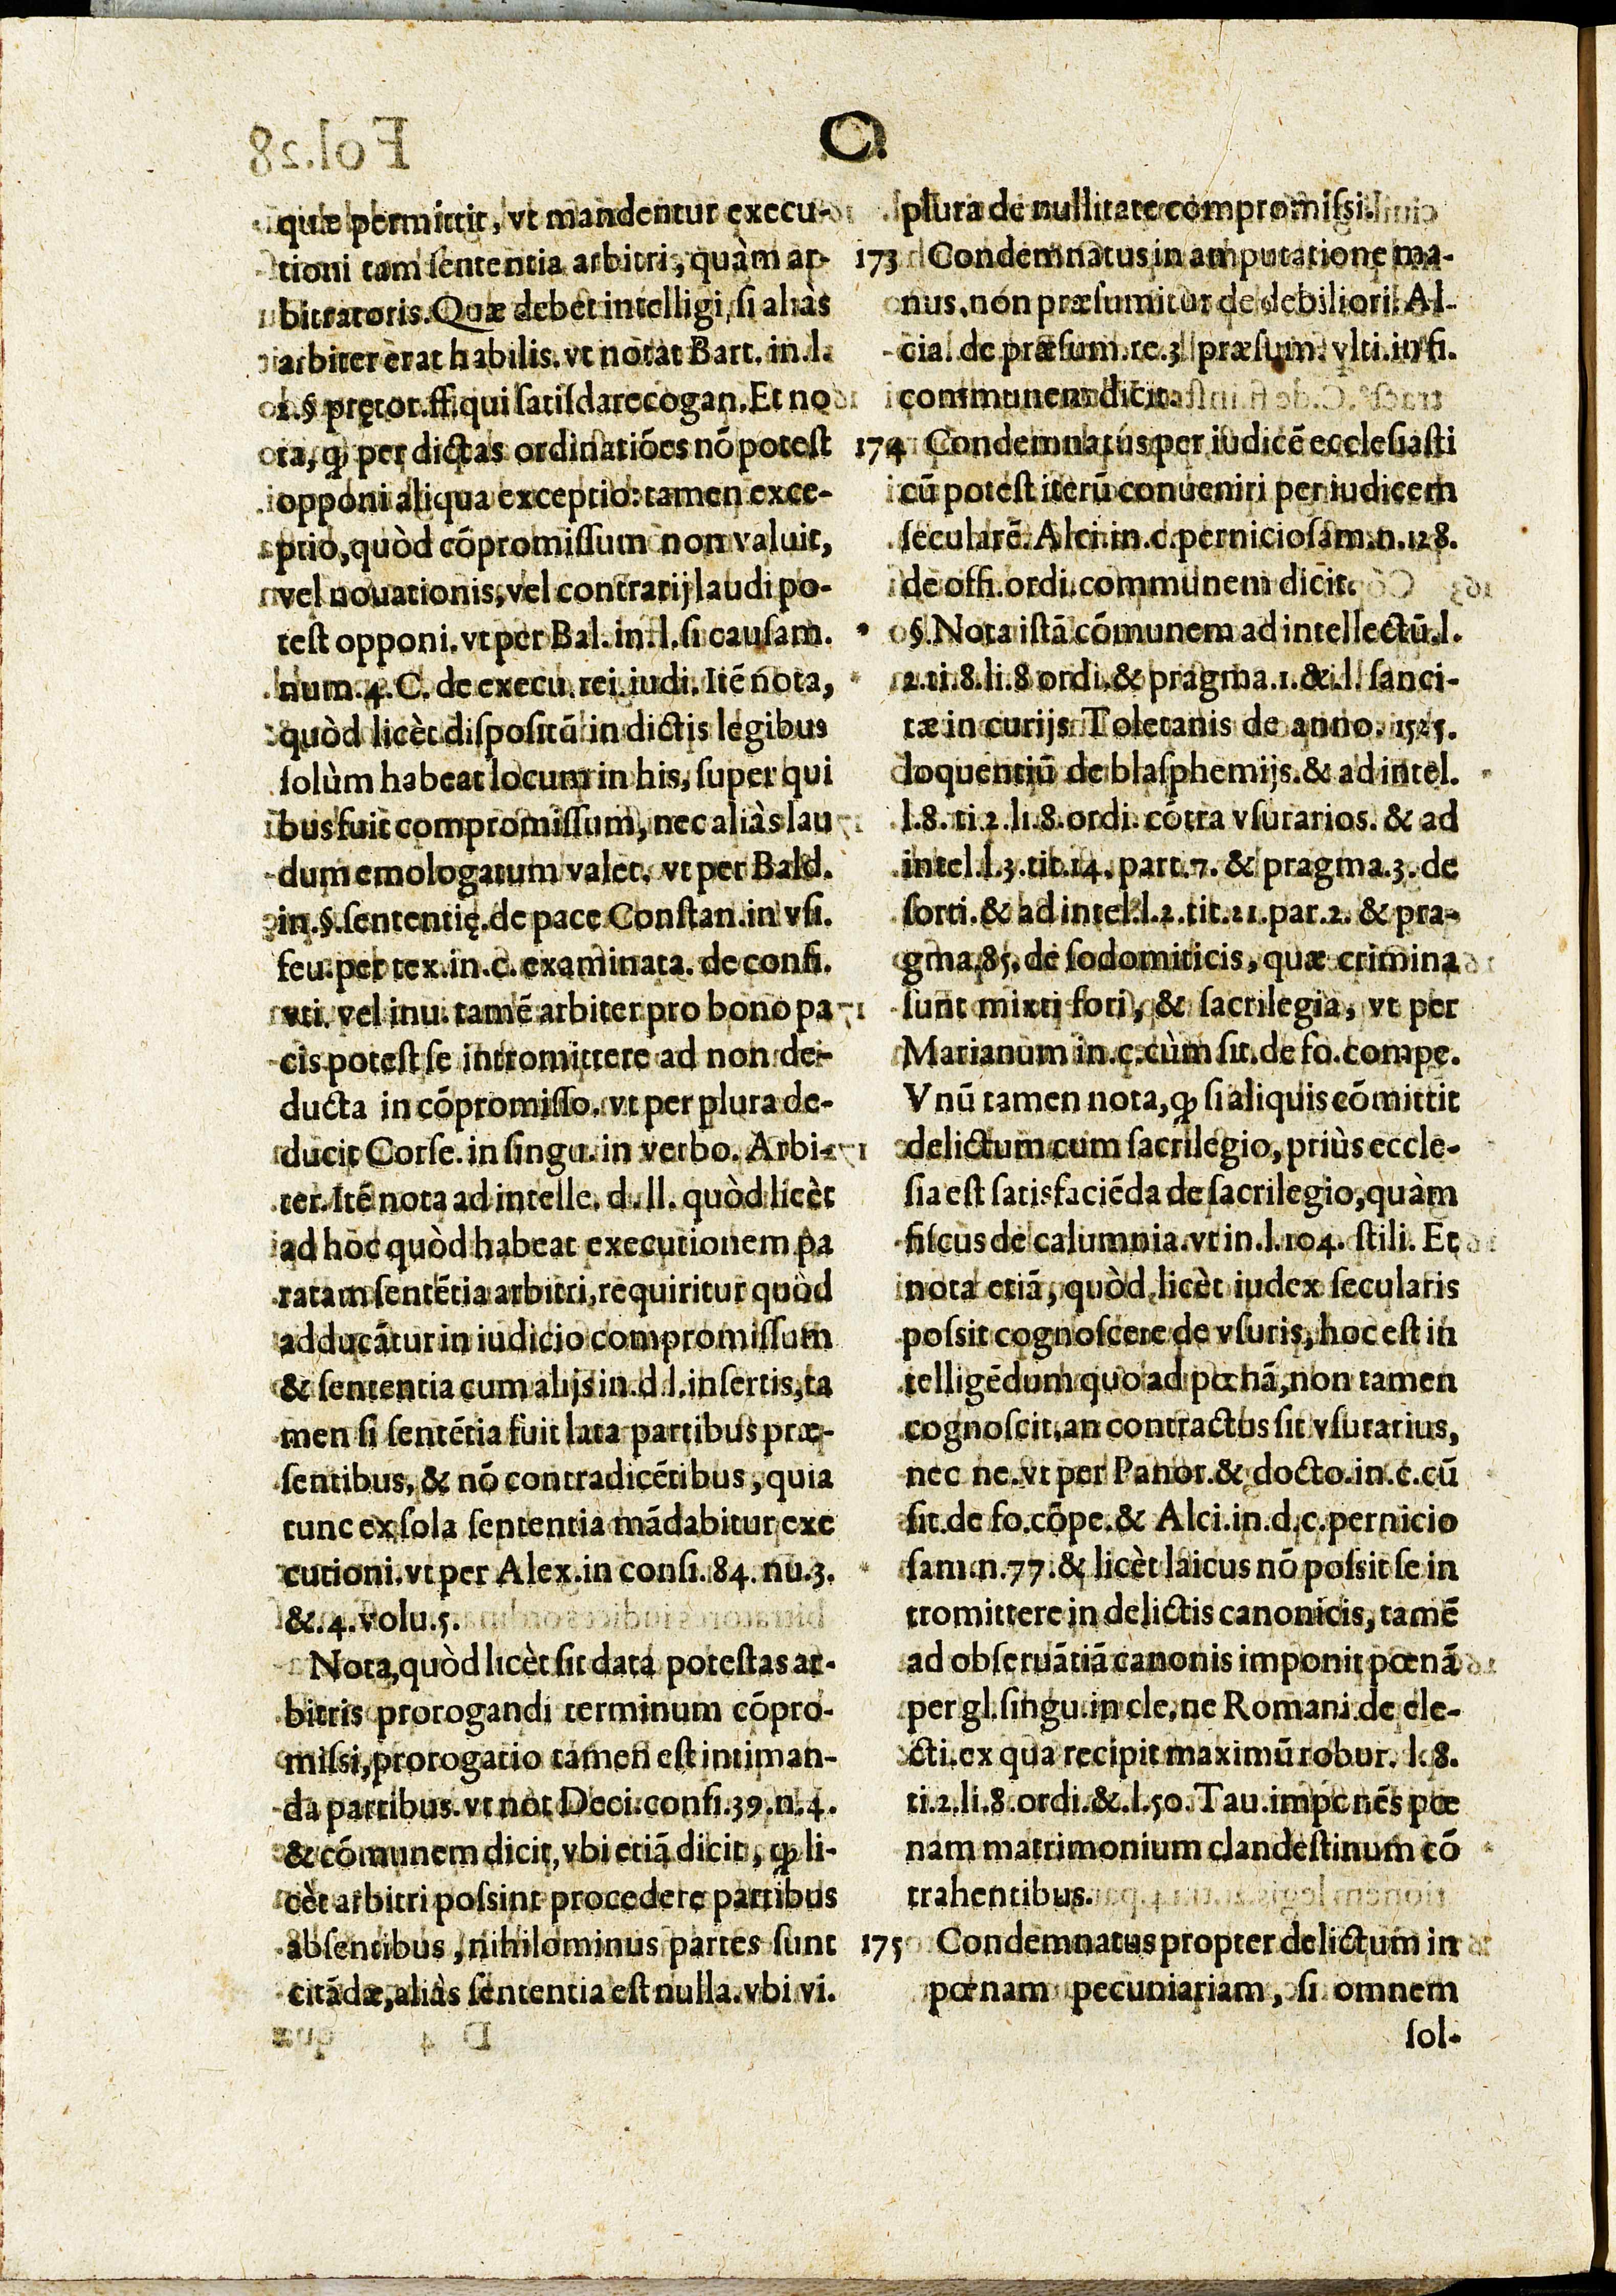 C.
quæ permittit, vt mandentur execu-
tioni tam ſententia arbitri, quàm ar-
bitratoris. Quæ debet intelligi, ſi aliàs
arbiter erat habilis. vt notat Bart. in.l.
1.§ prętor.ff.qui ſatiſdare cogan. Et no
ta, ꝙ per dictas ordinatiões nõ poteſt
opponi aliqua exceptio: tamen exce-
ptio, quòd cõpromiſſum non valuit,
vel nouationis, vel contrarij laudi po-
teſt opponi. vt per Bal. in.l. ſi cauſam.
num.4. C. de execu. rei. iudi. Itẽ nota,
quòd licèt diſpoſitũ in dictis legibus
ſolùm habeat locum in his, ſuper qui
bus fuit compromiſſum, nec aliàs lau
dum emologatum valet. vt per Bald.
in.§. ſententię. de pace Conſtan. in vſi.
feu. per tex. in. c. examinata. de confi.
vti. vel inu. tamẽ arbiter pro bono pa
cis poteſt ſe intromittere ad non de-
ducta in cõpromiſſo. vt per plura de-
ducit Corſe. in ſingu. in verbo. Arbi-
ter. Itẽ nota ad intelle. d. ll. quòd licèt
ad hoc quòd habeat executionem pa
ratam ſentẽtia arbitri, requiritur quòd
adducãtur in iudicio compromiſſum
& ſententia cum alijs in.d.l. inſertis, ta
men ſi ſentẽtia fuit lata partibus præ-
ſentibus, & nõ contradicẽtibus, quia
tunc ex ſola ſententia mãdabitur exe
cutioni. vt per Alex. in conſi. 84. nu.3.
&.4. volu.5.
Nota, quòd licèt ſit data poteſtas ar-
bitris prorogandi terminum cõpro-
miſsi, prorogatio tamen eſt intiman-
da partibus. vt not Deci. conſi.39.n.4.
& cõmunem dicit, vbi etiã dicit, ꝙ li-
cèt arbitri poſsint procedere partibus
abſentibus, nihilominus partes ſunt
citãdæ, aliàs ſententia eſt nulla. vbi vi.
plura de nullitate compromiſsi.
173 Condemnatus in amputatione ma-
nus, non præſumitur de debiliori. Al-
cia. de præſum. re.3 præſum. vlti. in fi.
communem dicit.
174 Condemnatus per iudicẽ eccleſiaſti
cũ poteſt iterũ conueniri per iudicem
ſecularẽ. Alci. in. c. pernicioſam. n.128.
de offi. ordi. communem dicit.
§. Nota iſtã cõmunem ad intellectũ.l.
2. ti.8. li.8 ordi. & pragma.1. &.l. ſanci-
tæ in curijs Toletanis de anno. 1525.
loquentiũ de blaſphemijs. & ad intel.
l.8. ti.2. li.8. ordi. cõtra vſurarios. & ad
intel.l.3. tit.14. part.7. & pragma.3. de
ſorti. & ad intel.l.2. tit.21. par.2. & pra-
gma.85. de ſodomiticis, quæ crimina
ſunt mixti fori, & ſacrilegia, vt per
Marianum in. c. cùm ſit. de fo. compe.
Vnũ tamen nota, ꝙ ſi aliquis cõmittit
delictum cum ſacrilegio, priùs eccle-
ſia eſt ſatisfaciẽda de ſacrilegio, quàm
fiſcus de calumnia. vt in.l.104. ſtili. Et
nota etiã, quòd licèt iudex ſecularis
poſsit cognoſcere de vſuris, hoc eſt in
telligẽdum quo ad pœnã, non tamen
cognoſcit, an contractus ſit vſurarius,
nec ne. vt per Panor. & docto. in. c. cũ
ſit. de fo. cõpe. & Alci. in. d. c. pernicio
ſam. n.77. & licèt laicus nõ poſsit ſe in
tromittere in delictis canonicis, tamẽ
ad obſeruãtiã canonis imponit pœnã
per gl. ſingu. in cle. ne Romani. de ele-
cti. ex qua recipit maximũ robur. l.8.
ti.2. li.8. ordi. &.l.50. Tau. imponẽs pœ
nam matrimonium clandeſtinum cõ
trahentibus.
175 Condemnatus propter delictum in
pœnam pecuniariam, ſi omnem
ſol-